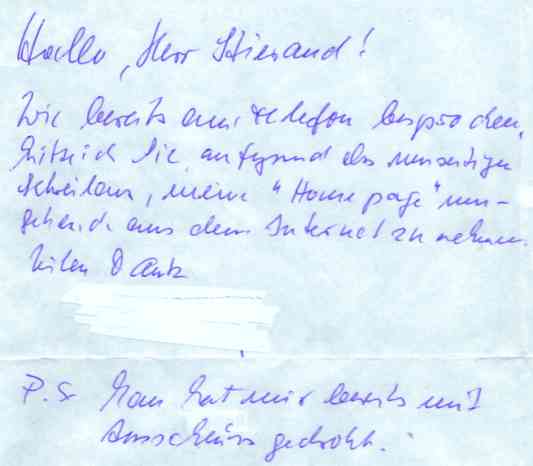 Hallo, Herr Stierand!
Wie bereits am Telefon besprochen,
bitte ich Sie, aufgrund des umseitigen
Schreibens, meine "Homepage" um-
gehend aus dem Internet zu nehmen.
Vielen Dank
P.S. Man hat mir bereits mit
Ausschluss gedroht.